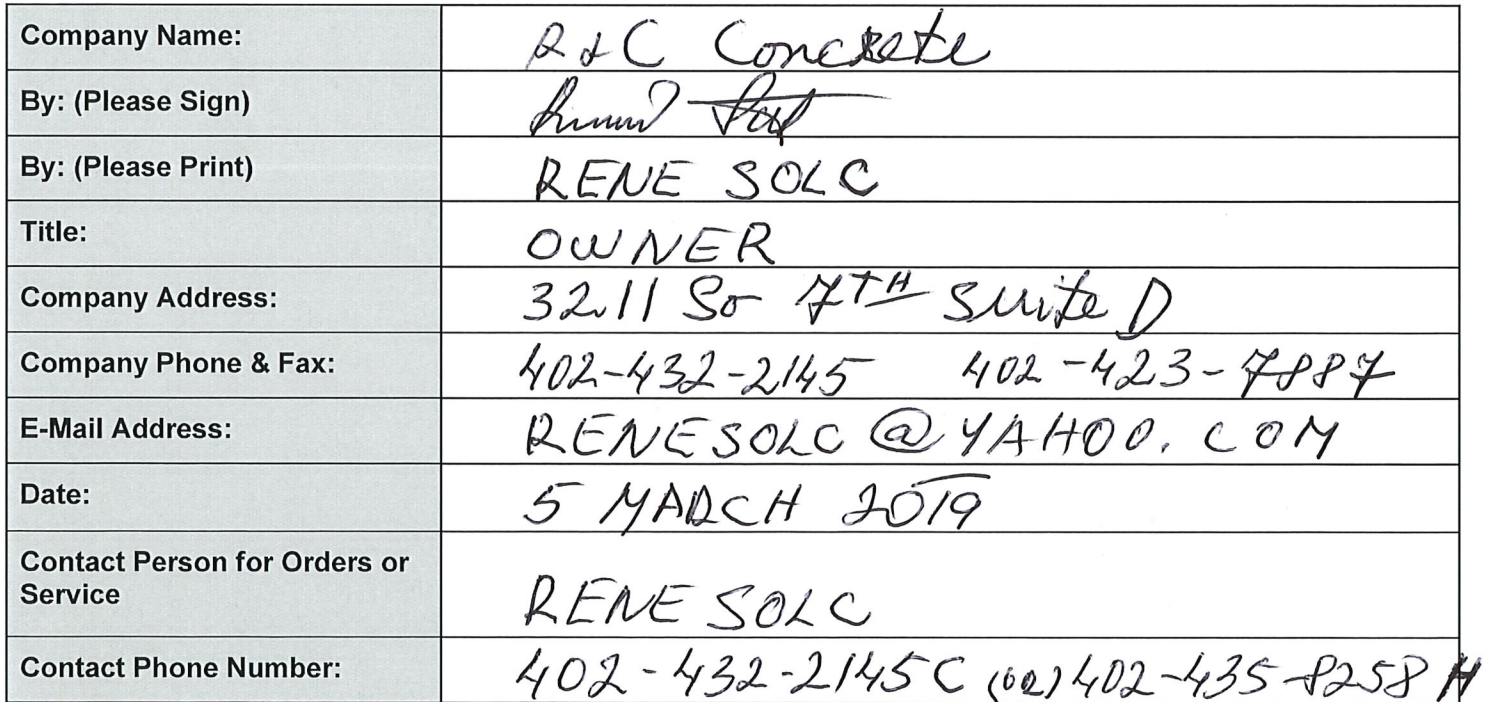 Company Name: R & C Concrete
By: (Please Sign)
By: (Please Print) RENE SOLC
Title: OWNER
Company Address: 3211 So 7TH Suite D
Company Phone & Fax: 402-432-2145 402-423-7887
E-Mail Address: RENESOLC@YAHOO.COM
Date: 5 MARCH 2019
Contact Person for Orders or
Service RENE SOLC
Contact Phone Number: 402-432-2145 C (OR) 402-435-8258 H